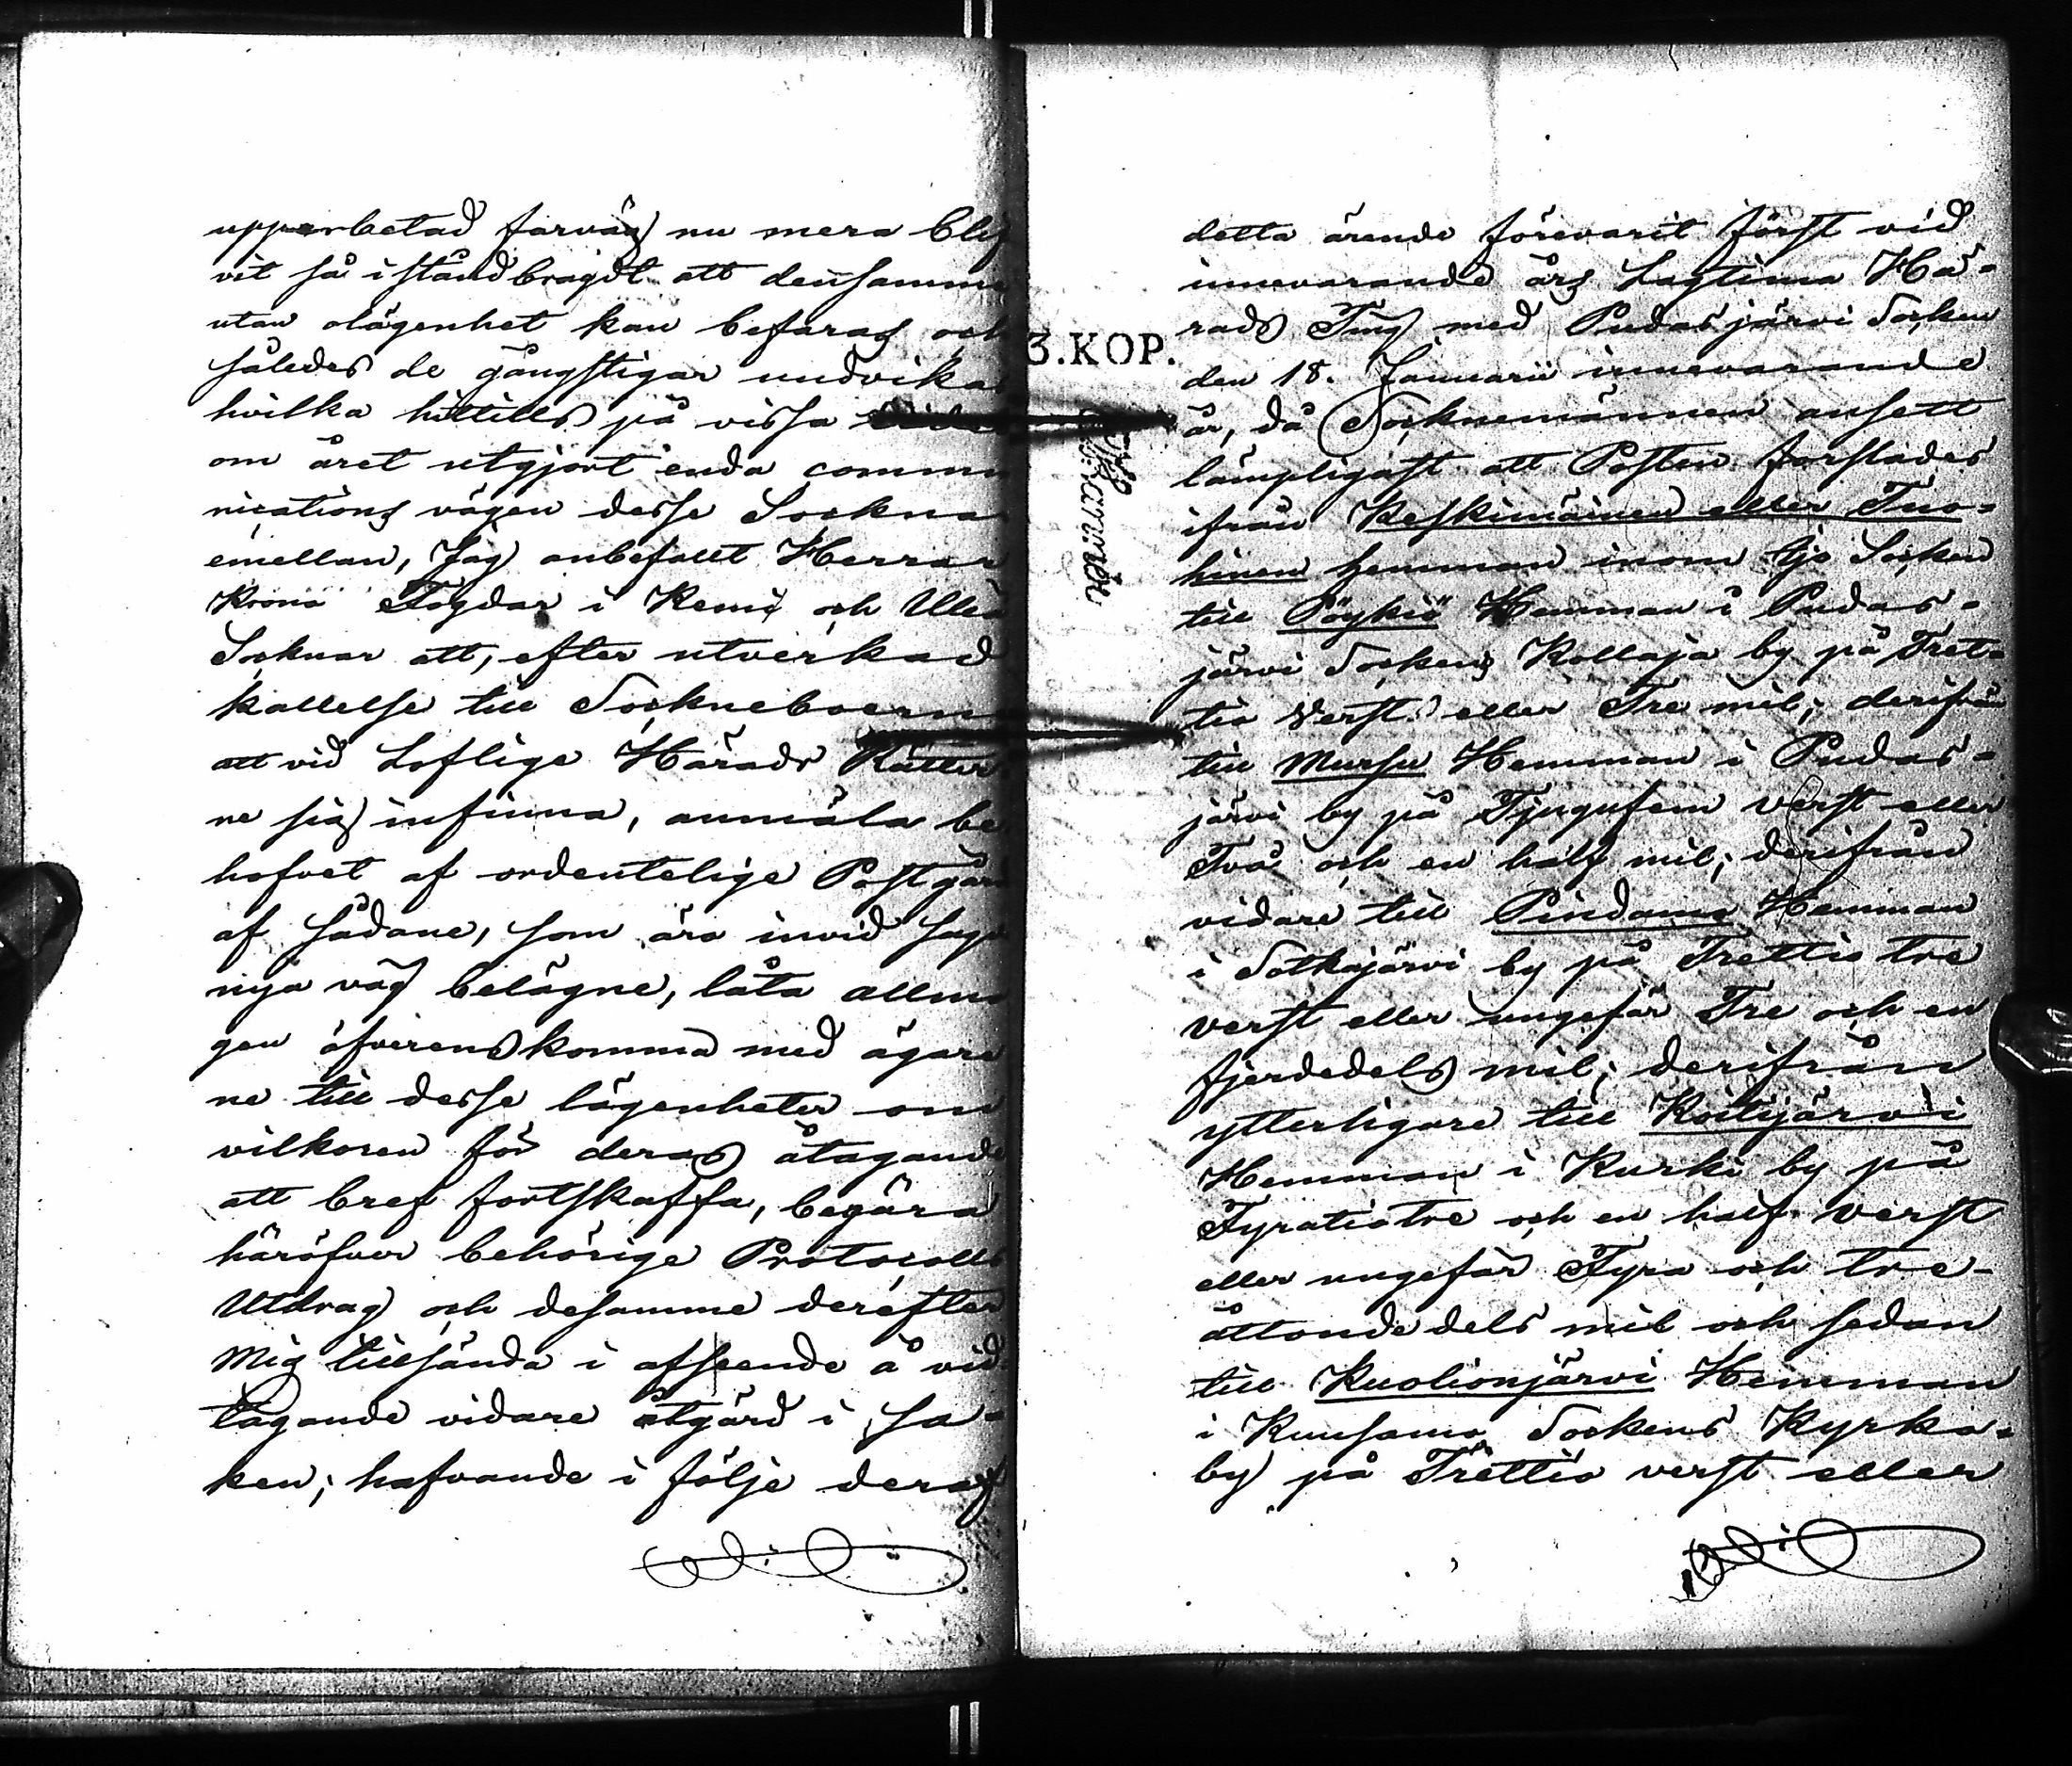 upparbetad farväg nu mera blif
vit så iståndbragdt att densamma
utan olägenhet kan befaras och
således de gångstigar undvikas
hvilka hittills på vissa
om året utgjort enda commu
nications vägen desse Sockna
emellan, Jag anbefallt Herrar
Krono Fogdar i Kemi och Uleå
Socknar att, efter utverkad
kallelse till Sockneboerne
att vid Loflige Härads Rätter
ne sig infinna, anmäla be
hofvet af ordentelige Postgård
af sådane, som äro invid sagde
nya väg belägne, låta allmo
gen öfverenskomma med ägare
ne till desse lägenheter om
vilkoren för deras åtagande
att bref fortskaffa, begära
häröfver behörige Protocolls
Utdrag och desamme derefter
Mig tillsända i afseende å vid
tagande vidare åtgärd i sa-
ken; hafvande i följe deraf
3.KOP.
detta ärende förevarit först vid
innevarande års Lagtima Hä-
rads Ting med Pudasjärvi Socken
den 18. Januarii innevarande
år, då Socknemännen ansett
lämpligast att Posten forslades
ifrån Keskimäinen eller Tuo-
hinen hemman inom Ijo Socken
till Pöykiö Hemman i Pudas-
järvi Sockens Kollaja by på Tret-
tio Verst eller Tre mil; derifrån
till Mursu Hemman i Pudas-
järvi by på Tjugufem verst eller
Två och en half mil; derifrån
vidare till Pindama Hemman
i Sotkajärvi by på Trettio tre
verst eller ungefär Tre och en
fjerdedels mil; derifrån
ytterligare till Koitijärvi
Hemman i Kurki by på
Fyratiotre och en half verst
eller ungefär Fyra och tre-
åttondedels mil och sedan
till Kuolionjärvi Hemman
i Kuusamo Sockens Kyrko-
by på Trettio verst eller